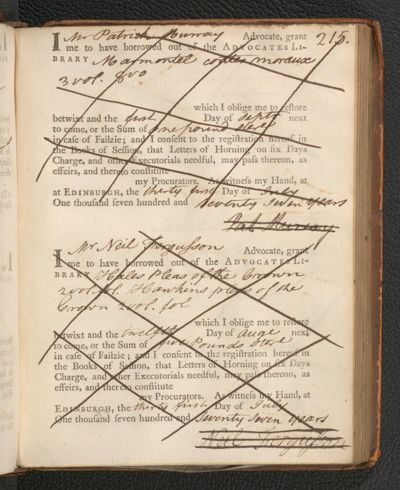 215.
I Mr Patrick Murray Advocate, grant
me to have borrowed out of the ADVOCATES LI-
BRARY Marmontel contes moraux
3 vol. 8vo
which I oblige me to restore
betwixt and the first Day of Septr next
to come, or the Sum of one pound sterl
in case of Failzie; and I consent to the registration hereof in
the Books of Session, that Letters of Horning on six Days
Charge, and other Executorials needful, may pass thereon, as
effeirs, and thereto constitute
my Procurators. As witness my Hand, at
at EDINBURGH, the thirty first Day of July
One thousand seven hundred and seventy seven years
Pat. Murray
I Mr Neil Fergusson Advocate, grant
me to have borrowed out of the ADVOCATES LI-
BRARY Hales Pleas of the Crown
2 vol. fol. Hawkins pleas of the
Crown 2 vol. fol
which I oblige me to restore
betwixt and the twelfth Day of Augt next
to come, or the Sum of five Pounds sterl
in case of Failzie; and I consent to the registration hereof in
the Books of Session, that Letters of Horning on six Days
Charge, and other Executorials needful, may pass thereon, as
effeirs, and thereto constitute
my Procurators. As witness my Hand, at
EDINBURGH, the thirty first Day of July
One thousand seven hundred and seventy seven years
Neil Fergusson